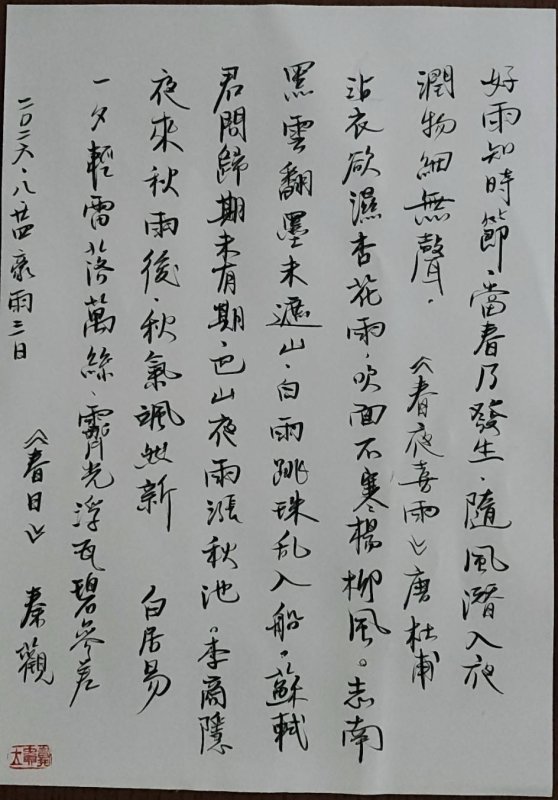 好雨知時節、當春乃發生、隨風潛入夜
潤物細無聲。《春夜喜雨》唐杜甫
沾衣欲濕杏花雨、吹面不寒楊柳風。志南
黑雲翻墨未遮山、白雨跳珠乱入船。蘇軾
君問歸期未有期、巴山夜雨漲秋池。李商隱
夜來秋雨後、秋氣颯然新 白居易
一夕輕雷落萬絲、霽光浮瓦碧參差
《春日》 秦觀
二〇二六、八廿四豪雨三日